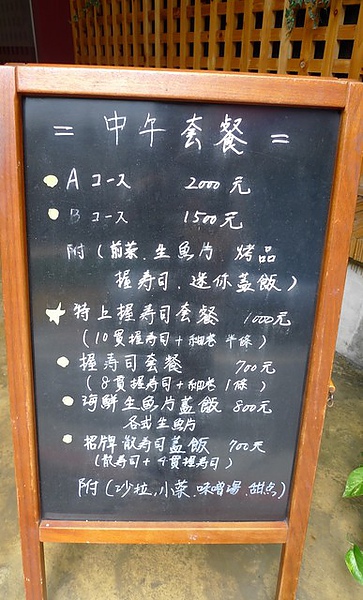 = 中午套餐 =
A コース 2000元
B コース 1500元
附(前菜.生魚片.烤品
握寿司.迷你蓋飯)
特上握寿司套餐 1000元
(10貫握寿司+細卷半條)
握寿司套餐 700元
(8貫握寿司+細卷1條)
海鮮生魚片蓋飯 800元
各式生魚片
招牌散寿司蓋飯 700元
(散寿司+4貫握寿司)
附(沙拉.小菜.味噌湯.甜点)